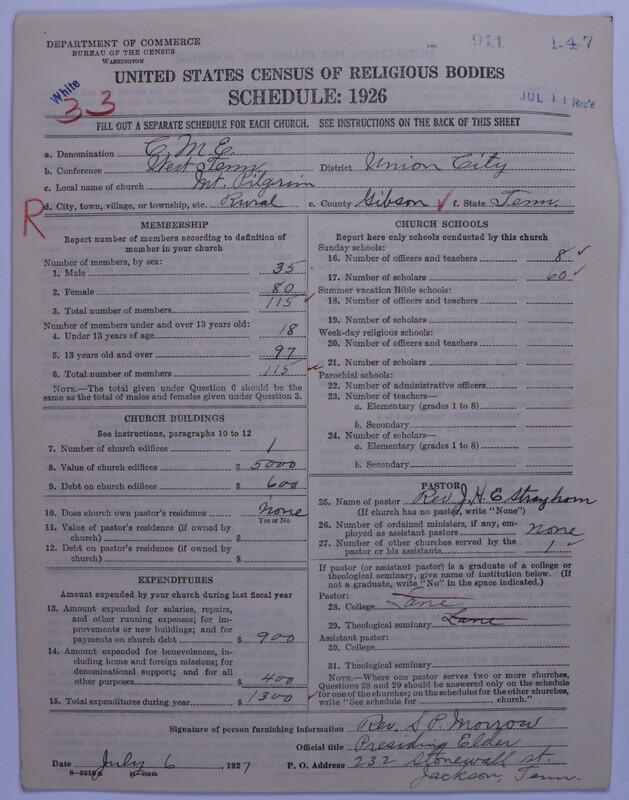 DEPARTMENT OF COMMERCE
BUREAU OF THE CENSUS
WASHINGTON
911
1-4-7
White
33
UNITED STATES CENSUS OF RELIGIOUS BODIES
SCHEDULE: 1926
JUL 11 Rec'd
FILL OUT A SEPARATE SCHEDULE FOR EACH CHURCH. SEE INSTRUCTIONS ON THE BACK OF THIS SHEET
a. Denomination C. M. E.
b. Conference West Tenn. District Union City
c. Local name of church Mt. Pilgrim
R
d. City, town, village, or township, etc. Rural e. County Gibson ✓ f. State Tenn.
MEMBERSHIP
Report number of members according to definition of member in your church
Number of members, by sex:
1. Male 35
2. Female 80
3. Total number of members 115 ✓
Number of members under and over 13 years old:
4. Under 13 years of age 18
5. 13 years old and over 97
6. Total number of members 115 ✓
NOTE.—The total given under Question 6 should be the same as the total of males and females given under Question 3.
CHURCH BUILDINGS
See instructions, paragraphs 10 to 12
7. Number of church edifices 1
8. Value of church edifices $ 5000
9. Debt on church edifices $ 600
10. Does church own pastor's residence none
Yes or No
11. Value of pastor's residence (if owned by church) $
12. Debt on pastor's residence (if owned by church) $
EXPENDITURES
Amount expended by your church during last fiscal year
13. Amount expended for salaries, repairs, and other running expenses; for improvements or new buildings; and for payments on church debt $ 900
14. Amount expended for benevolences, including home and foreign missions; for denominational support; and for all other purposes $ 400
15. Total expenditures during year $ 1300 ✓
CHURCH SCHOOLS
Report here only schools conducted by this church
Sunday schools:
16. Number of officers and teachers 8 ✓
17. Number of scholars 60 ✓
Summer vacation Bible schools:
18. Number of officers and teachers
19. Number of scholars
Week-day religious schools:
20. Number of officers and teachers
21. Number of scholars
Parochial schools:
22. Number of administrative officers
23. Number of teachers—
a. Elementary (grades 1 to 8)
b. Secondary
24. Number of scholars—
a. Elementary (grades 1 to 8)
b. Secondary
PASTOR
25. Name of pastor Rev. J. H. E Strayhorn
(If church has no pastor, write "None")
26. Number of ordained ministers, if any, employed as assistant pastors none
27. Number of other churches served by the pastor or his assistants 1 ✓
If pastor (or assistant pastor) is a graduate of a college or theological seminary, give name of institution below. (If not a graduate, write "No" in the space indicated.)
Pastor:
28. College Lane
29. Theological seminary Lane
Assistant pastor:
30. College
31. Theological seminary
NOTE.—Where one pastor serves two or more churches, Questions 28 and 29 should be answered only on the schedule for one of the churches; on the schedules for the other churches, write "See schedule for church."
Signature of person furnishing information Rev. S. P. Morrow
Official title Presiding Elder
Date July 6, 1927 P. O. Address 232 Stonewall st.
Jackson, Tenn.